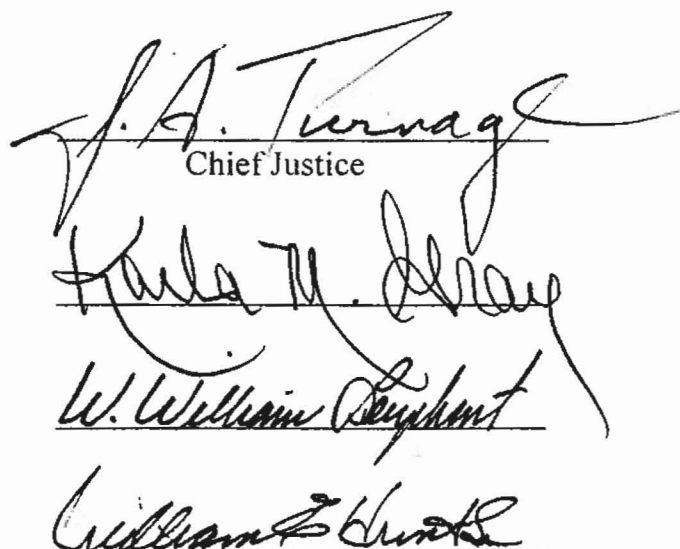 J. A. Turnage
Chief Justice
Karla M. Gray
W. William Leaphart
William E Hunt Sr